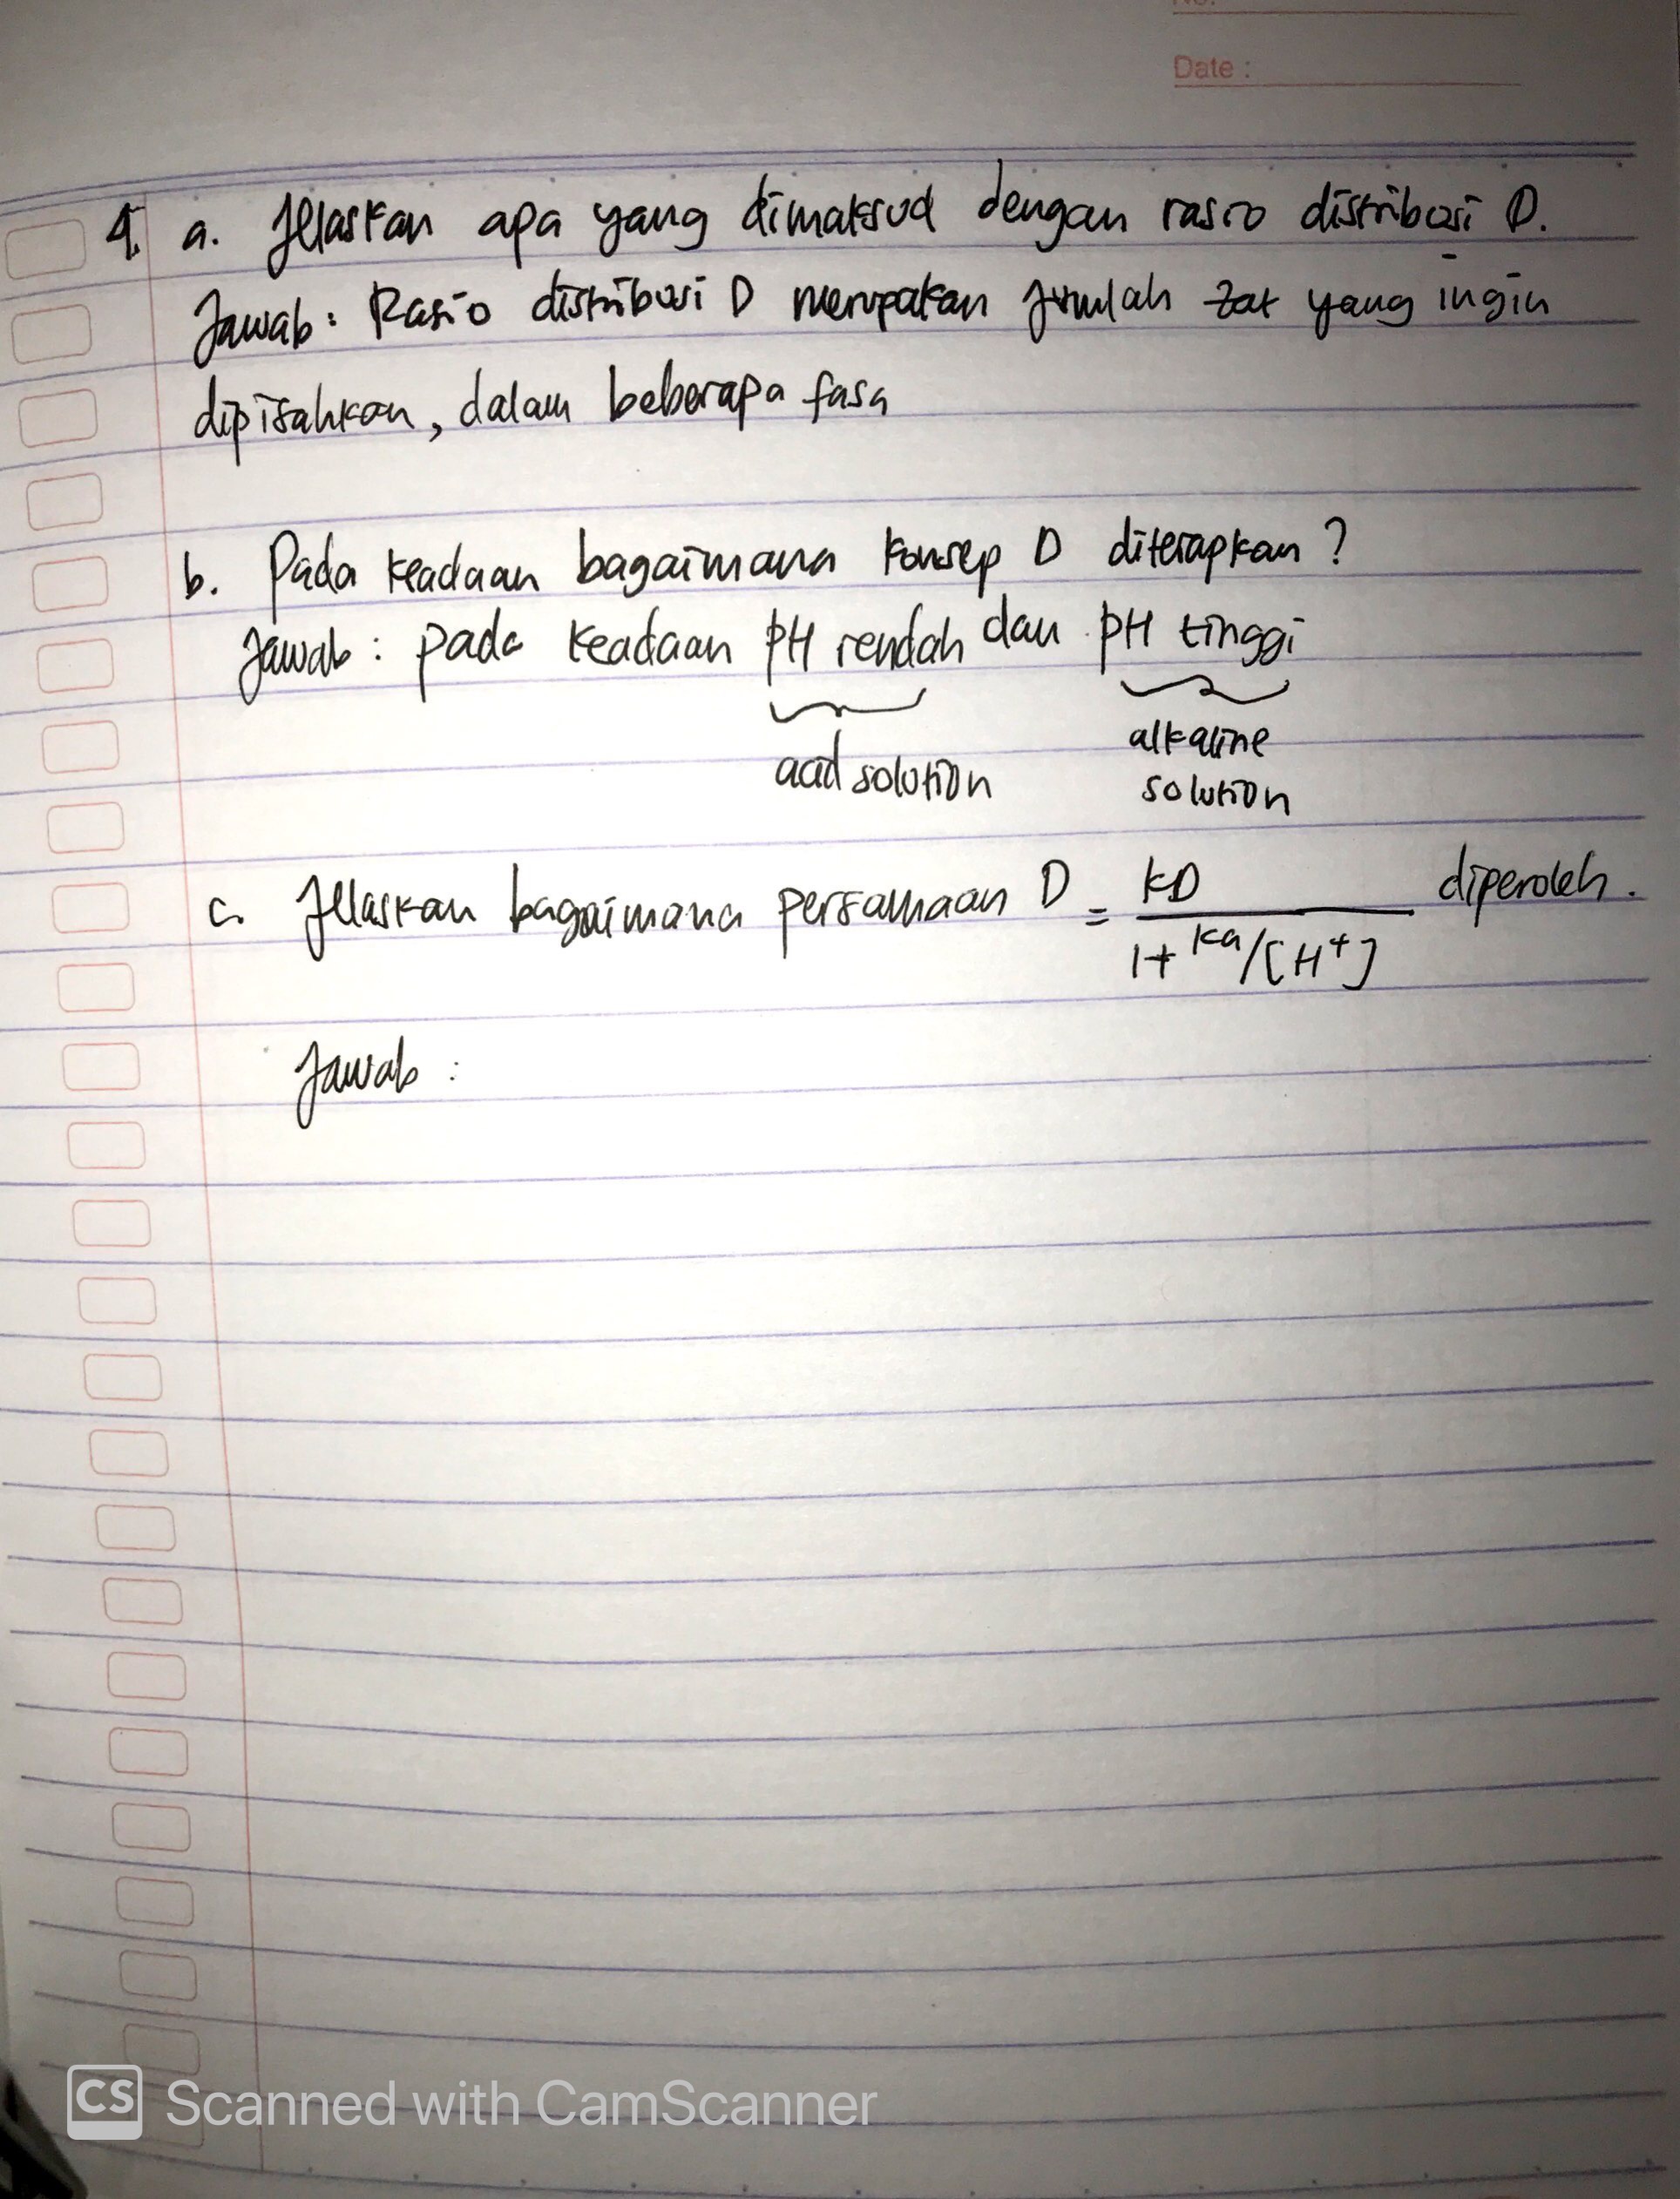 Date :
4. a. Jelaskan apa yang dimaksud dengan rasio distribusi D.
Jawab : Rasio distribusi D merupakan jumlah zat yang ingin
dipisahkan, dalam beberapa fasa
b. Pada keadaan bagaimana konsep D diterapkan ?
Jawab : pada keadaan pH rendah dan pH tinggi
acid solution
alkaline
solution
c. Jelaskan bagaimana persamaan D = KD / 1 + Ka/[H+] diperoleh.
Jawab :
CS Scanned with CamScanner